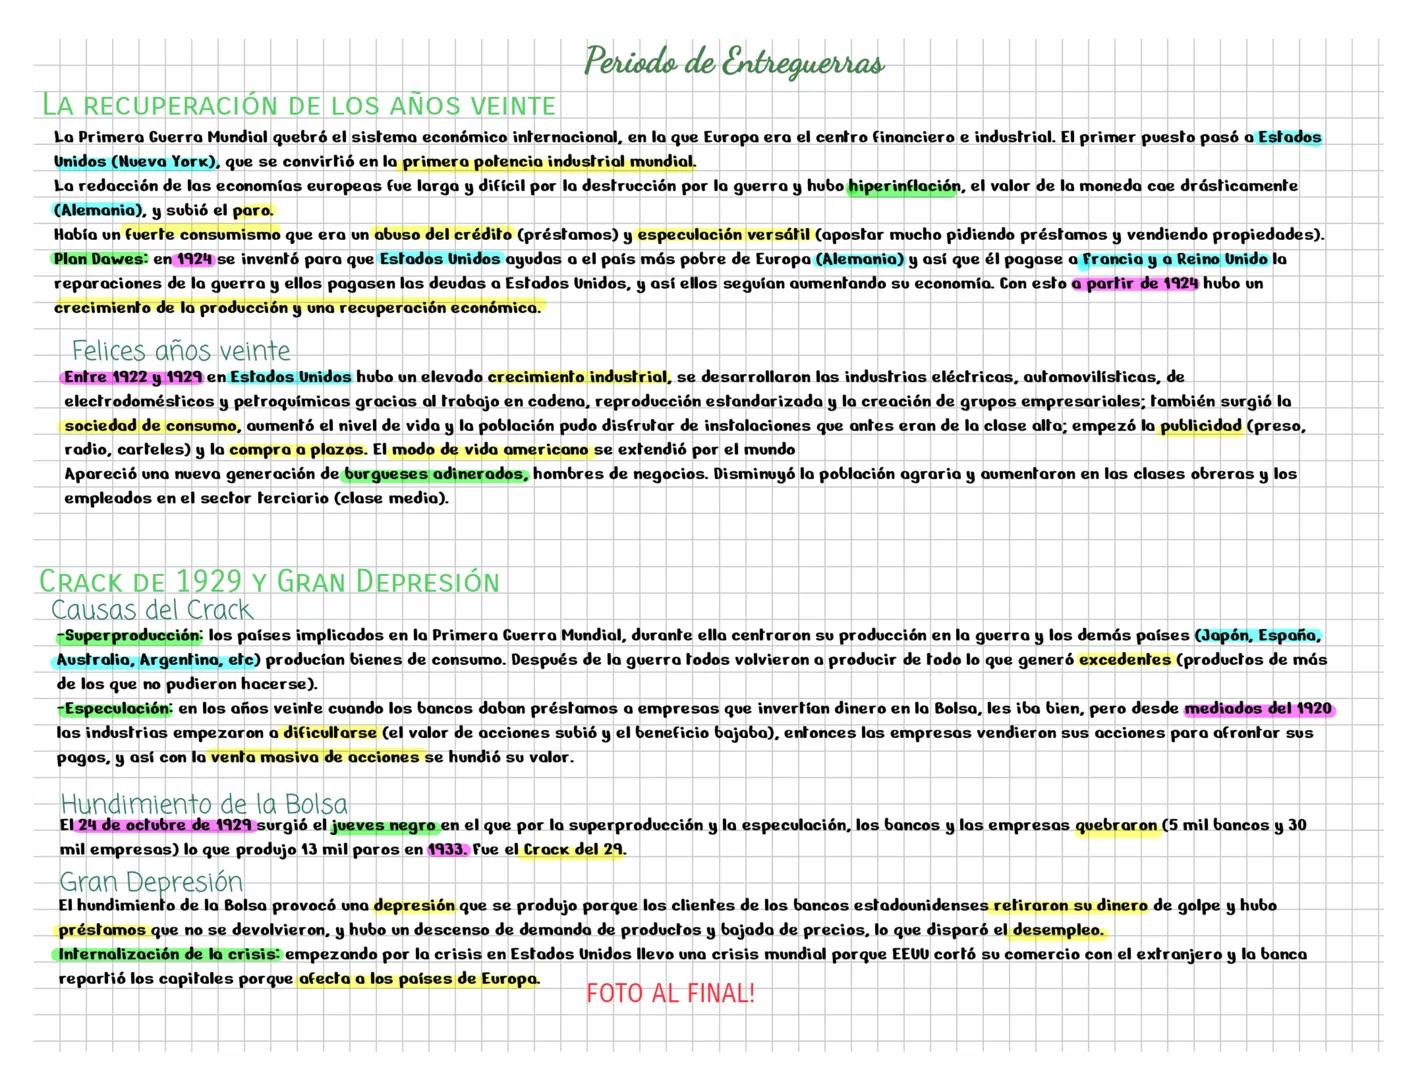 Periodo de Entreguerras
La recuperación de los años veinte
La Primera Guerra Mundial quebró el sistema económico internacional, en la que Europa era el centro financiero e industrial. El primer puesto pasó a Estados
Unidos (Nueva York), que se convirtió en la primera potencia industrial mundial.
La redacción de las economías europeas fue larga y difícil por la destrucción por la guerra y hubo hiperinflación, el valor de la moneda cae drásticamente
(Alemania), y subió el paro.
Había un fuerte consumismo que era un abuso del crédito (préstamos) y especulación versátil (apostar mucho pidiendo préstamos y vendiendo propiedades).
Plan Dawes: en 1924 se inventó para que Estados Unidos ayudas a el país más pobre de Europa (Alemania) y así que él pagase a Francia y a Reino Unido la
reparaciones de la guerra y ellos pagasen las deudas a Estados Unidos, y así ellos seguían aumentando su economía. Con esto a partir de 1924 hubo un
crecimiento de la producción y una recuperación económica.
Felices años veinte
Entre 1922 y 1929 en Estados Unidos hubo un elevado crecimiento industrial, se desarrollaron las industrias eléctricas, automovilísticas, de
electrodomésticos y petroquímicas gracias al trabajo en cadena, reproducción estandarizada y la creación de grupos empresariales; también surgió la
sociedad de consumo, aumentó el nivel de vida y la población pudo disfrutar de instalaciones que antes eran de la clase alta; empezó la publicidad (preso,
radio, carteles) y la compra a plazos. El modo de vida americano se extendió por el mundo
Apareció una nueva generación de burgueses adinerados, hombres de negocios. Disminuyó la población agraria y aumentaron en las clases obreras y los
empleados en el sector terciario (clase media).
Crack de 1929 y Gran Depresión
Causas del Crack
-Superproducción: los países implicados en la Primera Guerra Mundial, durante ella centraron su producción en la guerra y los demás países (Japón, España,
Australia, Argentina, etc) producían bienes de consumo. Después de la guerra todos volvieron a producir de todo lo que generó excedentes (productos de más
de los que no pudieron hacerse).
-Especulación: en los años veinte cuando los bancos daban préstamos a empresas que invertían dinero en la Bolsa, les iba bien, pero desde mediados del 1920
las industrias empezaron a dificultarse (el valor de acciones subió y el beneficio bajaba), entonces las empresas vendieron sus acciones para afrontar sus
pagos, y así con la venta masiva de acciones se hundió su valor.
Hundimiento de la Bolsa
El 24 de octubre de 1929 surgió el jueves negro en el que por la superproducción y la especulación, los bancos y las empresas quebraron (5 mil bancos y 30
mil empresas) lo que produjo 13 mil paros en 1933. Fue el Crack del 29.
Gran Depresión
El hundimiento de la Bolsa provocó una depresión que se produjo porque los clientes de los bancos estadounidenses retiraron su dinero de golpe y hubo
préstamos que no se devolvieron, y hubo un descenso de demanda de productos y bajada de precios, lo que disparó el desempleo.
Internalización de la crisis: empezando por la crisis en Estados Unidos llevo una crisis mundial porque EEUU cortó su comercio con el extranjero y la banca
repartió los capitales porque afecta a los países de Europa.
FOTO AL FINAL!